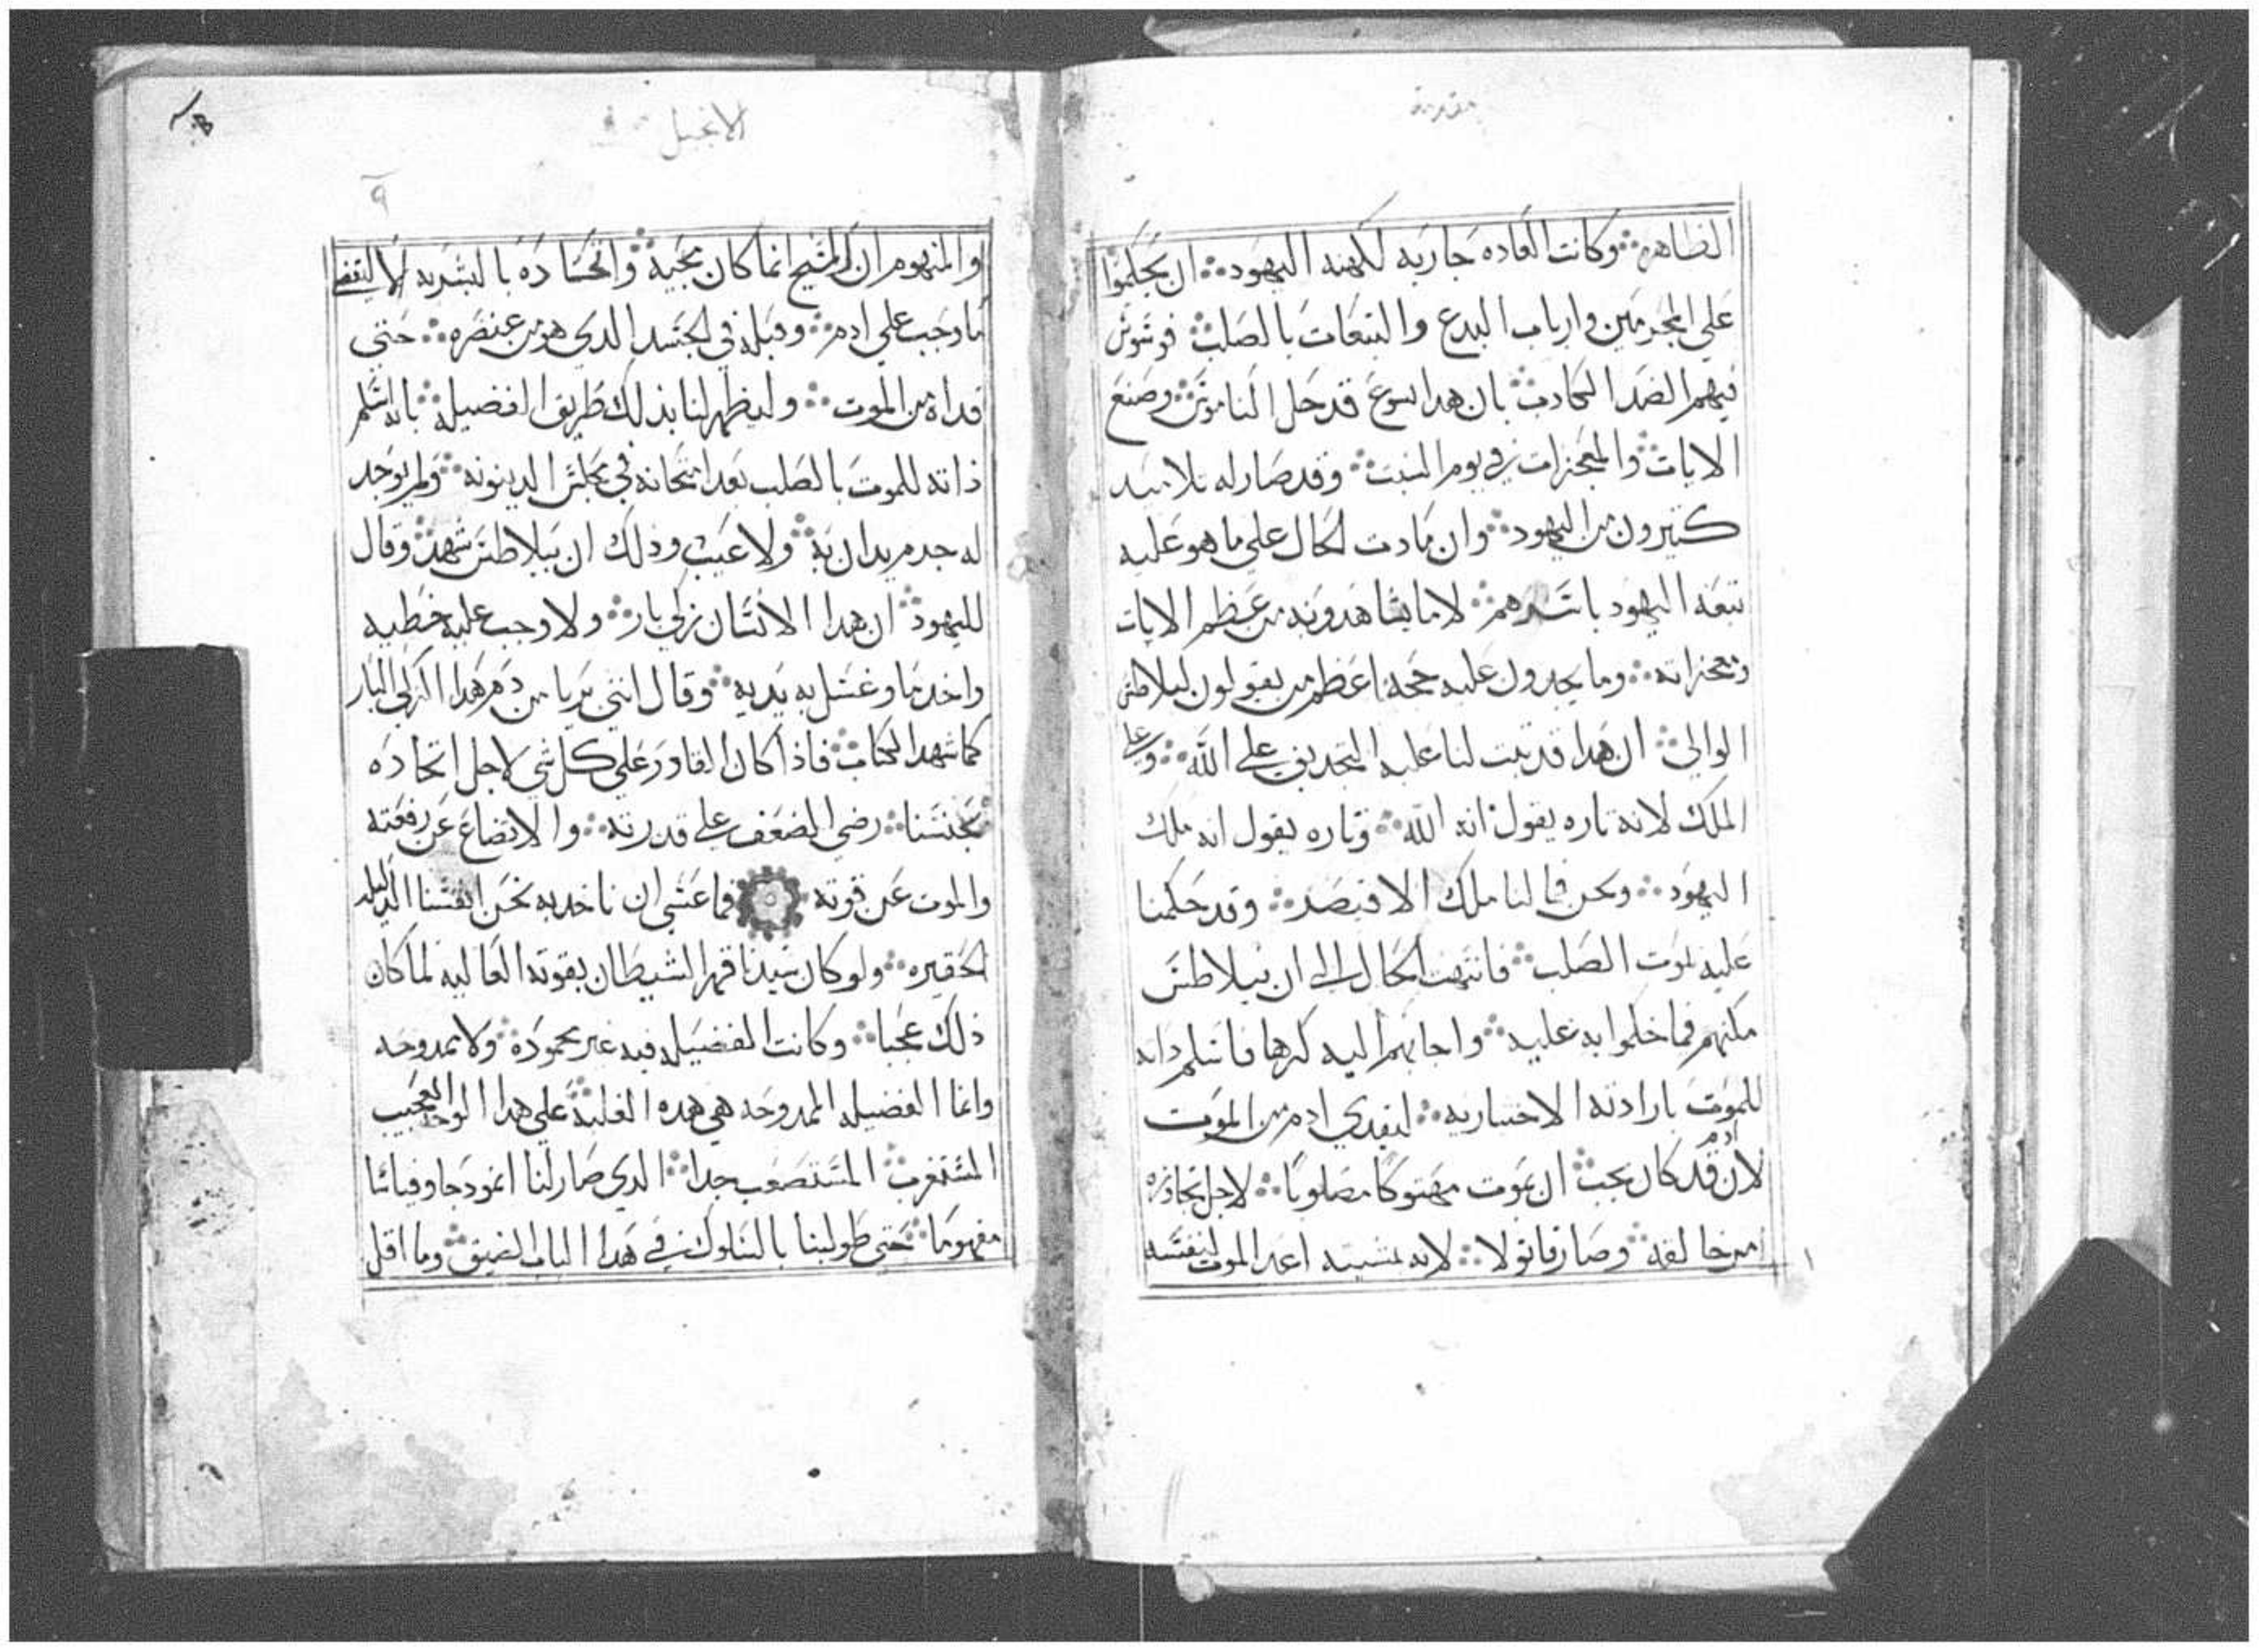 مقدمة
الظاهره وكانت العاده جاريه لكهنه اليهود ان يحكموا
علي المجرمين وارباب البدع والتبعات بالصلب فوسوس
فيهم الضد الكادب بان هدا يسوع قد حل الناموس وصنع
الايات والمعجزات في يوم السبت وقد صار له تلاميد
كتيرون من اليهود وان مادت الحال علي ما هو عليه
تبعه اليهود باسرهم لما يشاهدونه من عظم الايات
ومعجزاته وما يجدون عليه حجه اعظم من يقولون لبيلاطس
الوالي ان هدا قد تبت لنا عليه التجديف علي الله وعلي
الملك لانه تاره يقول انه الله وتاره يقول انه ملك
اليهود ونحن فما لنا ملك الا قيصر وقد حكمنا
عليه بموت الصلب فانتهت الحال الي ان بيلاطس
مكنهم فما حكموا به عليه واجابهم اليه كرها فاسلم داته
للموت بارادته الاختياريه ليفدي ادم من الموت
لان ادم قد كان يجب ان يموت مهتوكا مصلوبا لاجل تجاوزه
من خالفه وصار قانولا لانه بمشيته اعد الموت لنفسه
الانجيل
٩
والمفهوم ان المسيح انما كان مجيه واتحاده بالبشريه الا ليقضا
ما وجب علي ادم وقبله في الجسد الدي هو من عنصره حتي
فداه من الموت وليظهر لنا بذلك طريق الفضيله بانه اسلم
ذاته للموت بالصلب بعد امتحانه في مجلس الدينونه ولم يوجد
له جرم يدان به ولا عيب وذلك ان بيلاطس شهد وقال
لليهود ان هدا الانسان زكي بار ولا وجب عليه خطيه
واخد ما وغسل به يديه وقال انني بريا من دم هدا الزكي البار
كما شهد الكتاب فاذا كان القادر علي كل شي لاجل اتحاده
بجنسنا رضي الضعف علي قدرته والاتضاع عن رفعته
والموت عن قوته فما عسي ان ناخد به نحن انفسنا الدليله
الحقيره ولو كان سيدنا قهر الشيطان بقوته العاليه لما كان
ذلك عجبا وكانت الفضيله فيه غير محموده ولا ممدوحه
وانما الفضيله الممدوحه هي هده الغلبه علي هدا الوجه العجيب
المستغرب المستصعب جدا الدي صار لنا انمودجا وقياسا
مفهوما حتي طولبنا بالسلوك في هدا الباب الضيق وما اقل